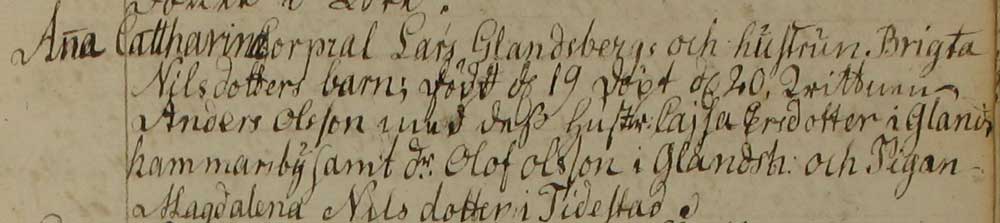 Aña Cattharina Corpral Lars Glandsbergs och hustrun Brigta
Nilsdotters barn; född d. 19 döpt d. 20, Wittnen
Anders Olsson med dess hustr. Cajsa Ersdotter i Gland
hammarsby samt dr. Olof olsson i Glandsh: och Pigan
Magdalena Nilsdotter i Tidestad